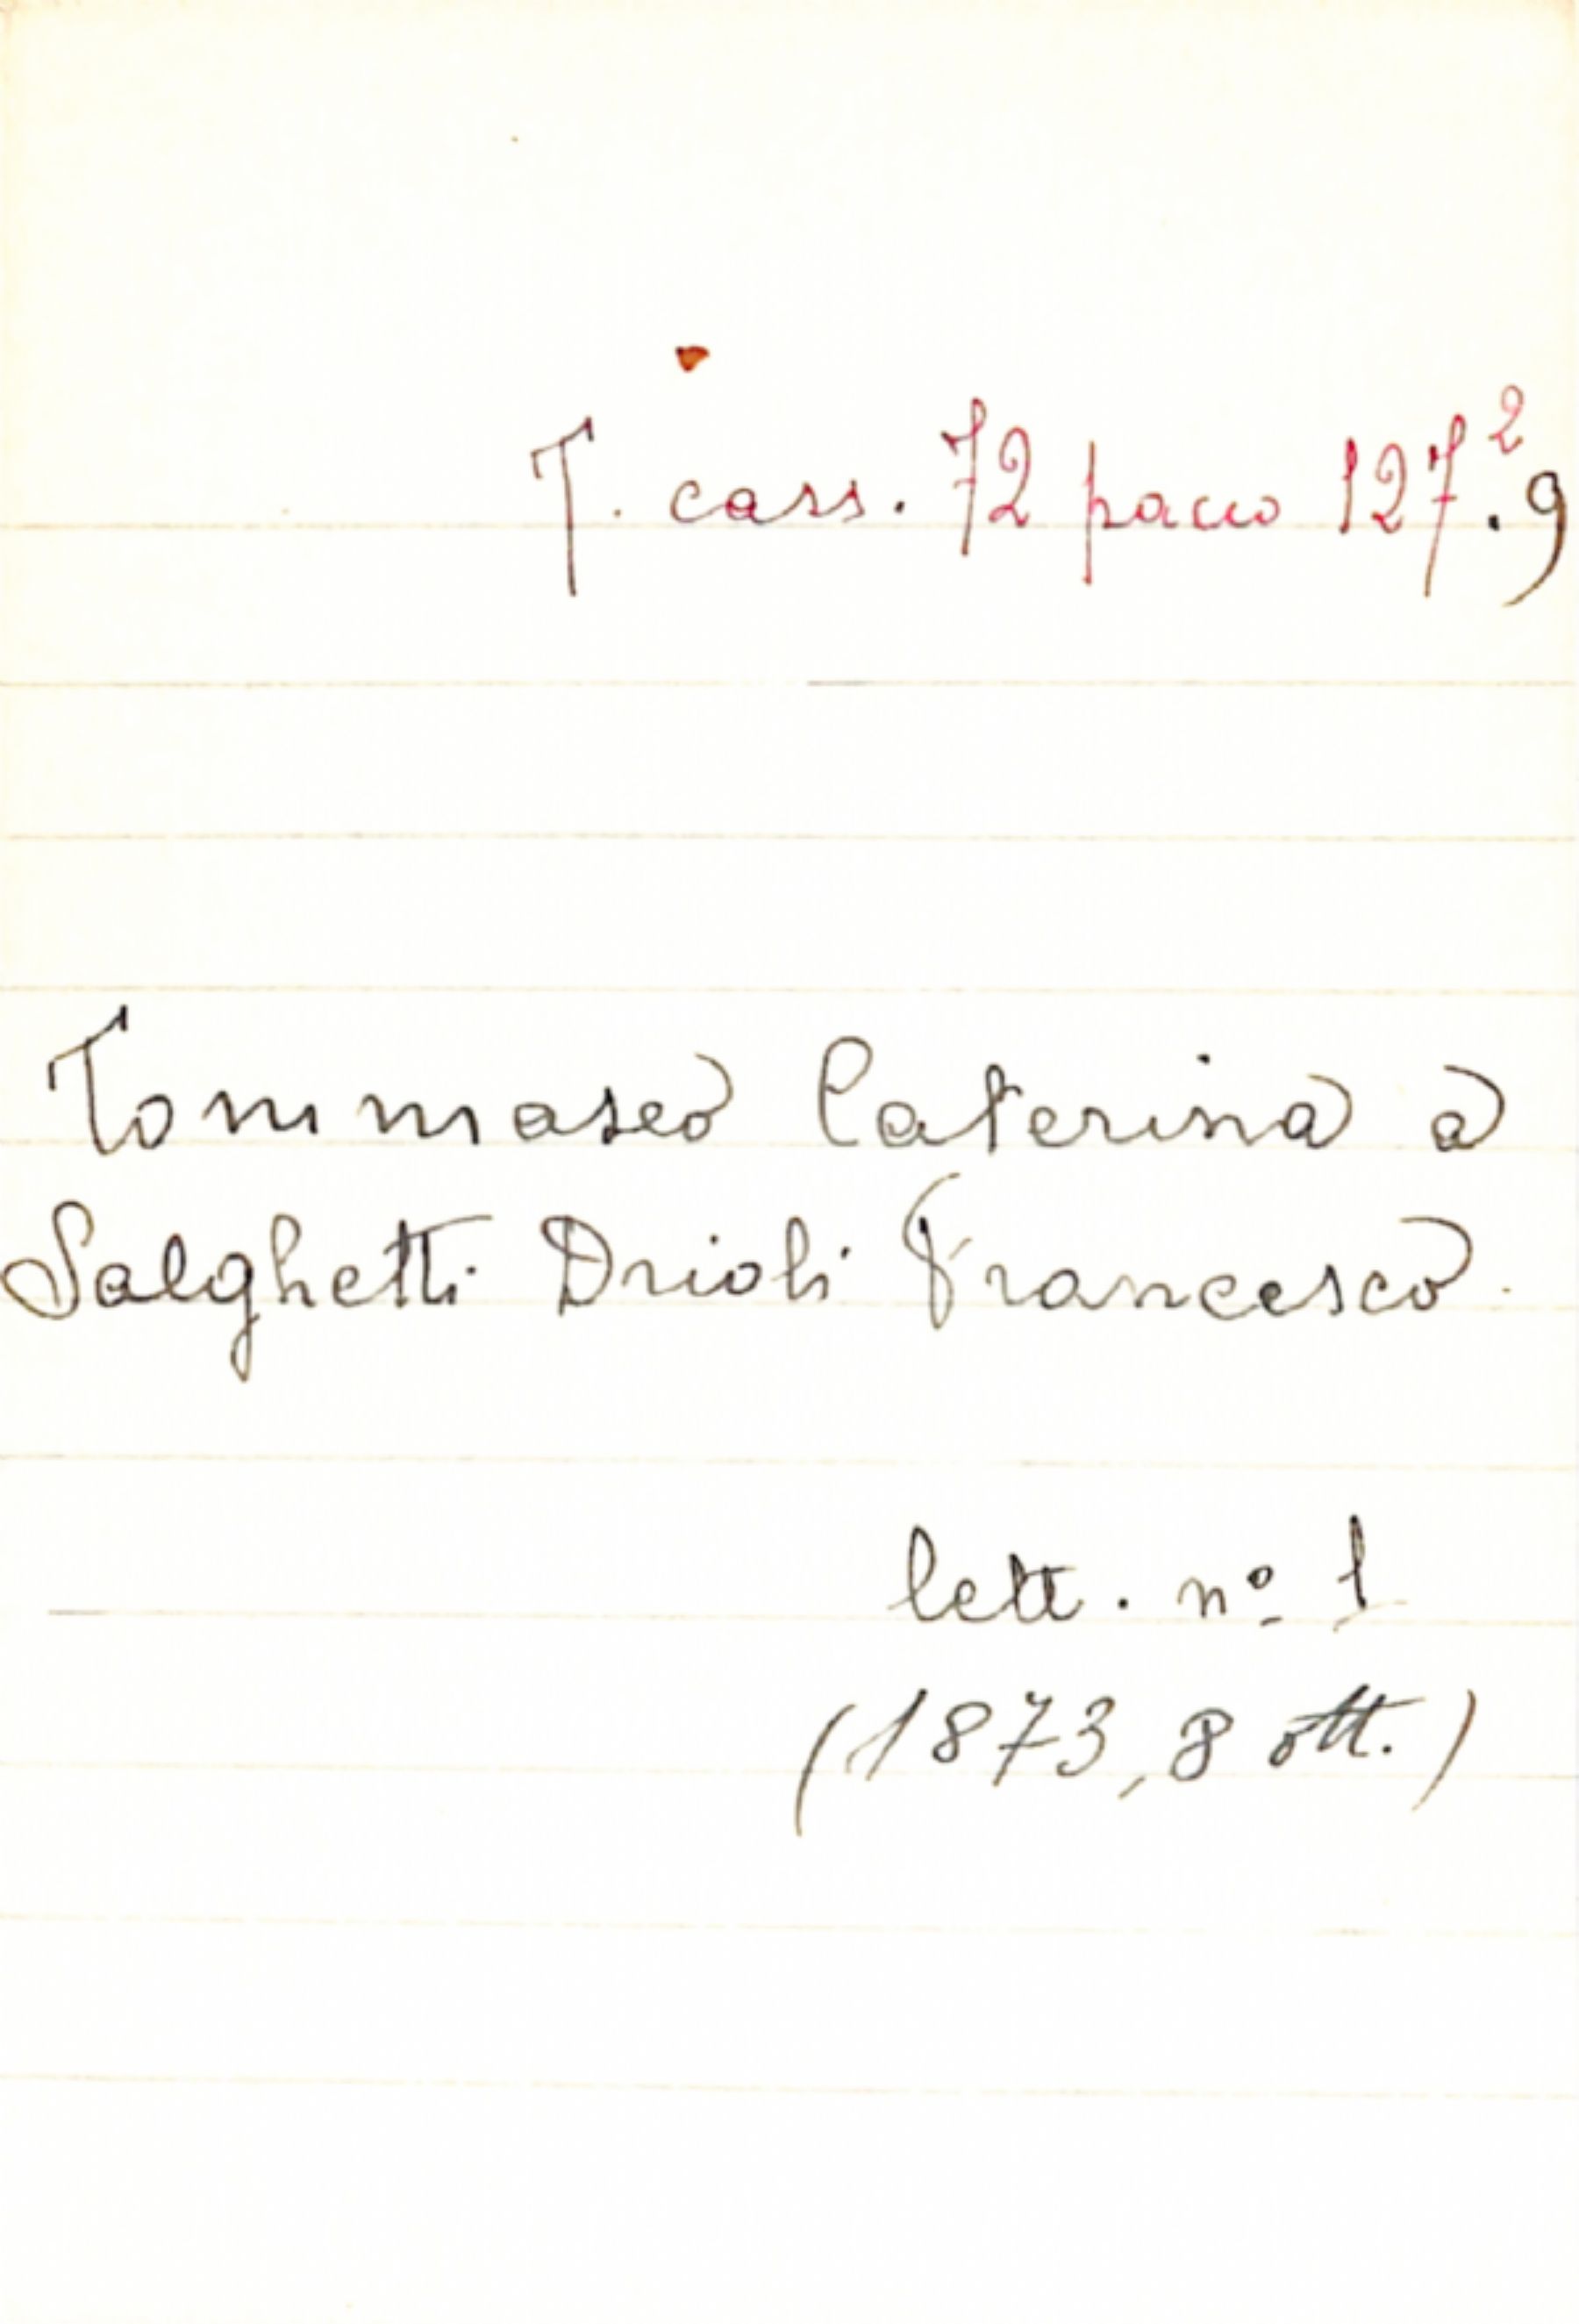 T. cass. 72 pacco 127².9
Tommaseo Caterina a
Salghetti Drioli Francesco.
lett. nº 1
(1873, 8 ott.)